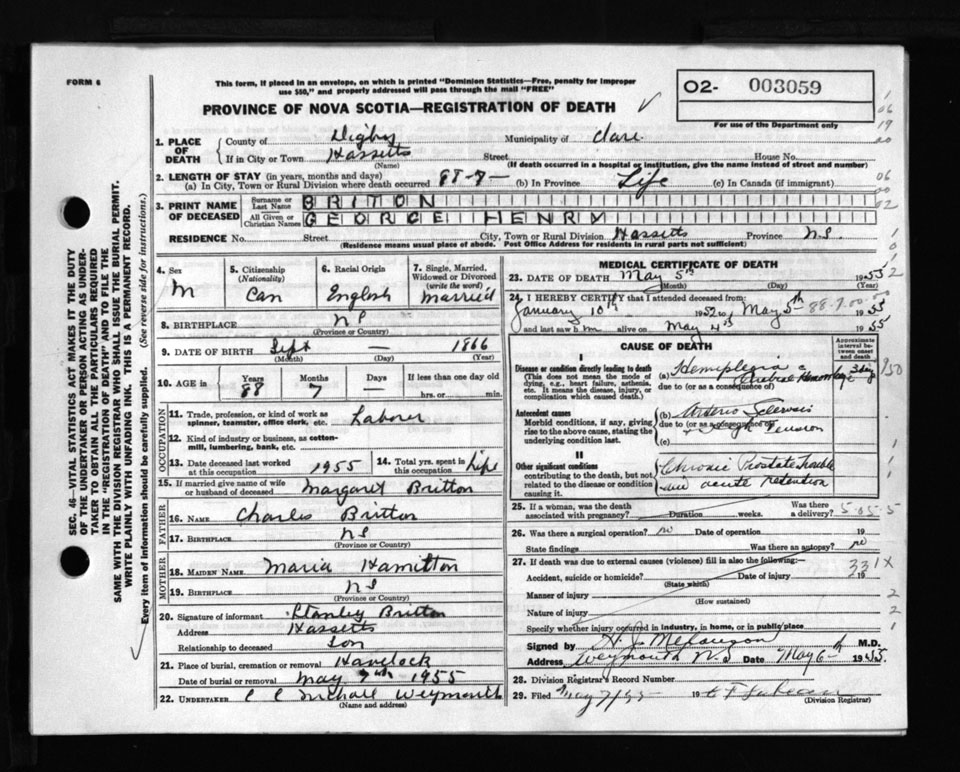 FORM 6
This form, if placed in an envelope, on which is printed "Dominion Statistics—Free, penalty for improper
use $50," and properly addressed will pass through the mail "FREE"
PROVINCE OF NOVA SCOTIA—REGISTRATION OF DEATH
O2- 003059
For use of the Department only
SEC. 46—VITAL STATISTICS ACT MAKES IT THE DUTY
OF THE UNDERTAKER OR PERSON ACTING AS UNDER-
TAKER TO OBTAIN ALL THE PARTICULARS REQUIRED
IN THE "REGISTRATION OF DEATH" AND TO FILE THE
SAME WITH THE DIVISION REGISTRAR WHO SHALL ISSUE THE BURIAL PERMIT.
WRITE PLAINLY WITH UNFADING INK. THIS IS A PERMANENT RECORD.
Every item of information should be carefully supplied. (See reverse side for instructions.)
1. PLACE OF DEATH County of Digby Municipality of Clare
If in City or Town Hassetts Street House No.
(Name) (If death occurred in a hospital or institution, give the name instead of street and number)
2. LENGTH OF STAY (in years, months and days)
(a) In City, Town or Rural Division where death occurred 88-7- (b) In Province Life (c) In Canada (if immigrant)
3. PRINT NAME OF DECEASED Surname or Last Name BRITON
All Given or Christian Names GEORGE HENRY
RESIDENCE No. Street City, Town or Rural Division Hassetts Province N.S.
(Residence means usual place of abode. Post Office Address for residents in rural parts not sufficient)
4. Sex M
5. Citizenship (Nationality) Can
6. Racial Origin English
7. Single, Married, Widowed or Divorced (write the word) Married
8. BIRTHPLACE NS
(Province or Country)
9. DATE OF BIRTH Sept — 1866
(Month) (Day) (Year)
10. AGE in Years 88 Months 7 Days — If less than one day old
hrs. or min.
OCCUPATION
11. Trade, profession, or kind of work as spinner, teamster, office clerk, etc. Laborer
12. Kind of industry or business, as cotton-mill, lumbering, bank, etc.
13. Date deceased last worked at this occupation 1955 14. Total yrs. spent in this occupation Life
15. If married give name of wife or husband of deceased Margaret Britton
FATHER
16. NAME Charles Britton
17. BIRTHPLACE NS
(Province or Country)
MOTHER
18. MAIDEN NAME Maria Hamilton
19. BIRTHPLACE NS
(Province or Country)
20. Signature of informant Stanley Britton
Address Hassetts
Relationship to deceased Son
21. Place of burial, cremation or removal Havelock
Date of burial or removal May 7th 1955
22. UNDERTAKER Weymouth
(Name and Address)
MEDICAL CERTIFICATE OF DEATH
23. DATE OF DEATH May 5th 1955
(Month) (Day) (Year)
24. I HEREBY CERTIFY that I attended deceased from:
January 10th 1952 to May 5th 1955
and last saw him alive on May 4th 1955
88-7-00-00
CAUSE OF DEATH
Approximate interval between onset and death
I
Disease or condition directly leading to death
This does not mean the mode of dying, e.g., heart failure, asthenia, etc. It means the disease, injury, or complication which caused death.
(a) Hemiplegia c 3 days
due to (or as a consequence of) Cerebral Hemorrhage
Antecedent causes
Morbid conditions, if any, giving rise to the above cause, stating the underlying condition last.
(b) Arterio Sclerosis
due to (or as a consequence of) + High Tension
(c)
II
Other significant conditions
contributing to the death, but not related to the disease or condition causing it.
Chronic Prostate trouble
and acute retention
25. If a woman, was the death associated with pregnancy? Duration weeks. Was there a delivery?
5-05-5
26. Was there a surgical operation? no Date of operation 19
State findings Was there an autopsy? no
27. If death was due to external causes (violence) fill in also the following:
331X
Accident, suicide or homicide? Date of injury 19
(State which)
Manner of injury
(How sustained)
Nature of injury
Specify whether injury occurred in industry, in home, or in public place
Signed by M.D.
Address Weymouth N.S Date May 6th 1955
28. Division Registrar's Record Number
29. Filed May 7/55 19
(Division Registrar)